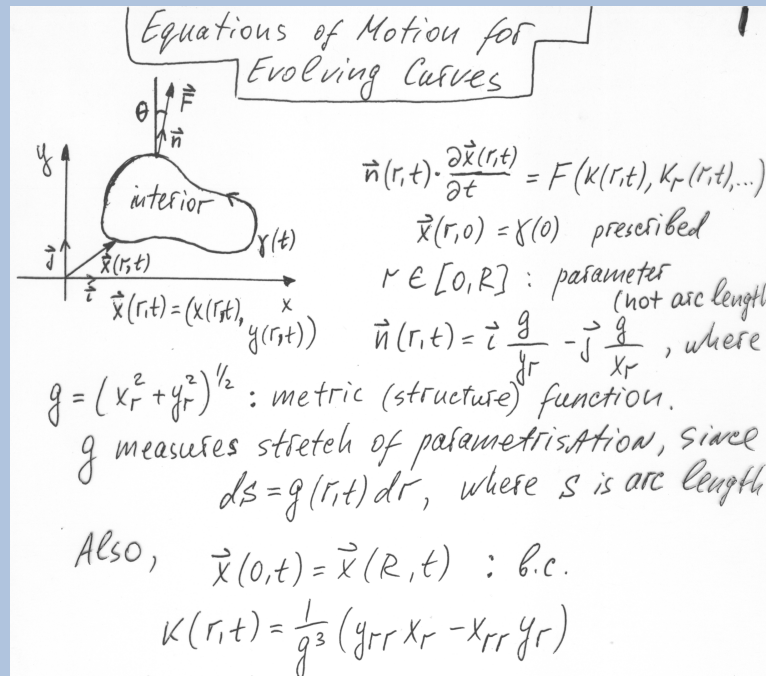 Equations of Motion for
Evolving Curves
θ F⃗
n⃗
y
interior
γ(t)
j⃗
x⃗(r,t)
i⃗
x
x⃗(r,t) = (x(r,t),
y(r,t))
n⃗(r,t) · ∂x⃗(r,t)/∂t = F(K(r,t), K_r(r,t),...)
x⃗(r,0) = γ(0) prescribed
r ∈ [0,R] : parameter
(not arc length
n⃗(r,t) = i⃗ g/y_r - j⃗ g/x_r , where
g = (x_r² + y_r²)^1/2 : metric (structure) function.
g measures stretch of parametrisAtion, since
ds = g(r,t) dr, where s is arc length
Also, x⃗(0,t) = x⃗(R,t) : b.c.
K(r,t) = 1/g³ (y_rr x_r - x_rr y_r)